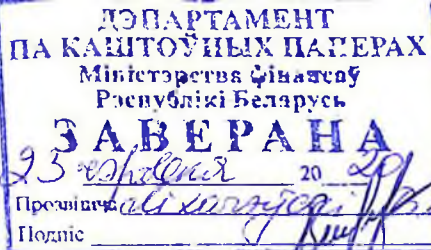 ДЭПАРТАМЕНТ
ПА КАШТОЎНЫХ ПАПЕРАХ
Міністэрства фінансаў
Рэспублікі Беларусь
ЗАВЕРАНА
25 чэрвеня 20 20
Прозвішча
Подпіс